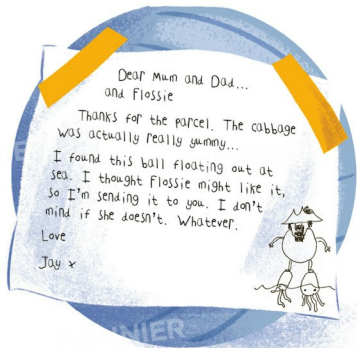 Dear Mum and Dad...
and Flossie
Thanks for the parcel. The cabbage
was actually really yummy...
I found this ball floating out at
sea. I thought Flossie might like it,
so I'm sending it to you. I don't
mind if she doesn't. Whatever.
Love
Jay x